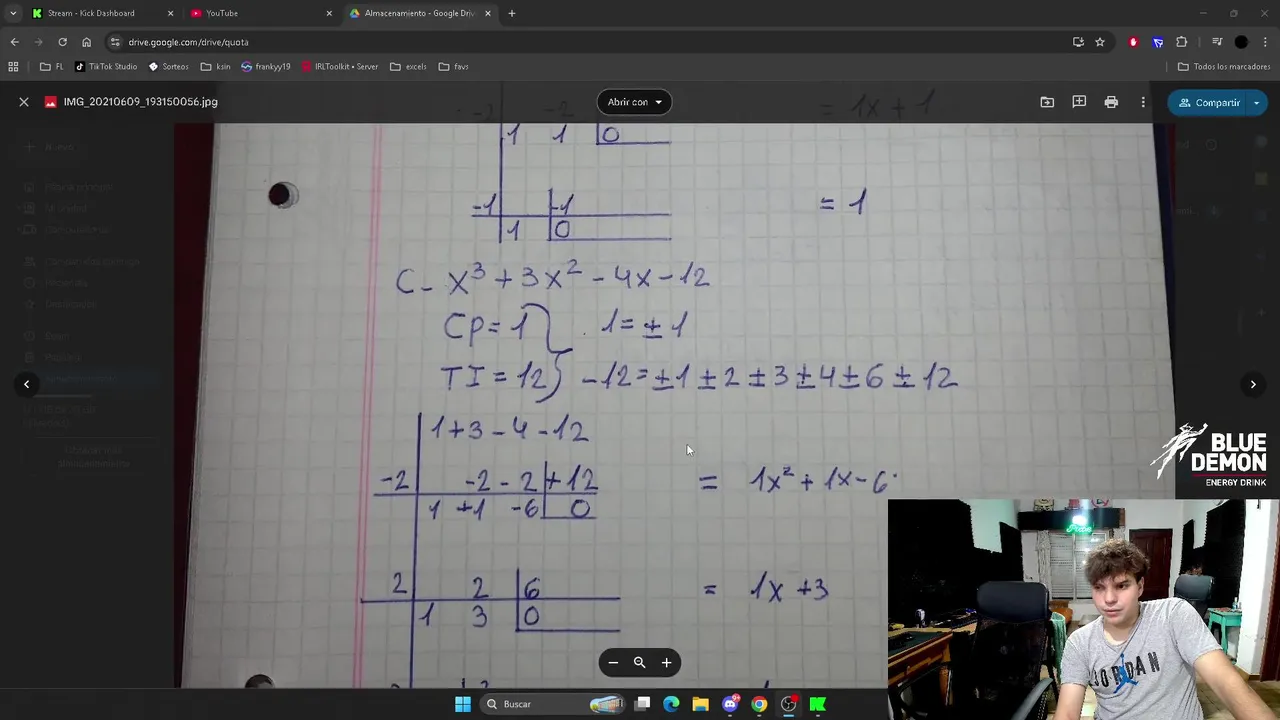 Stream - Kick Dashboard
YouTube
Almacenamiento - Google Driv
drive.google.com/drive/quota
FL
TikTok Studio
Sorteos
ksin
frankyy19
IRLToolkit • Server
excels
favs
Todos los marcadores
IMG_20210609_193150056.jpg
Abrir con
Compartir
= 1x + 1
1 1 0
-1 -1
= 1
1 0
C- x³ + 3x² - 4x - 12
CP = 1
1 = ± 1
TI = 12
-12 = ±1 ±2 ±3 ±4 ±6 ±12
1 +3 -4 -12
-2 -2 -2 +12
= 1x² + 1x - 6
1 +1 -6 0
2 2 6
= 1x +3
1 3 0
BLUE
DEMON
ENERGY DRINK
JORDAN
Buscar